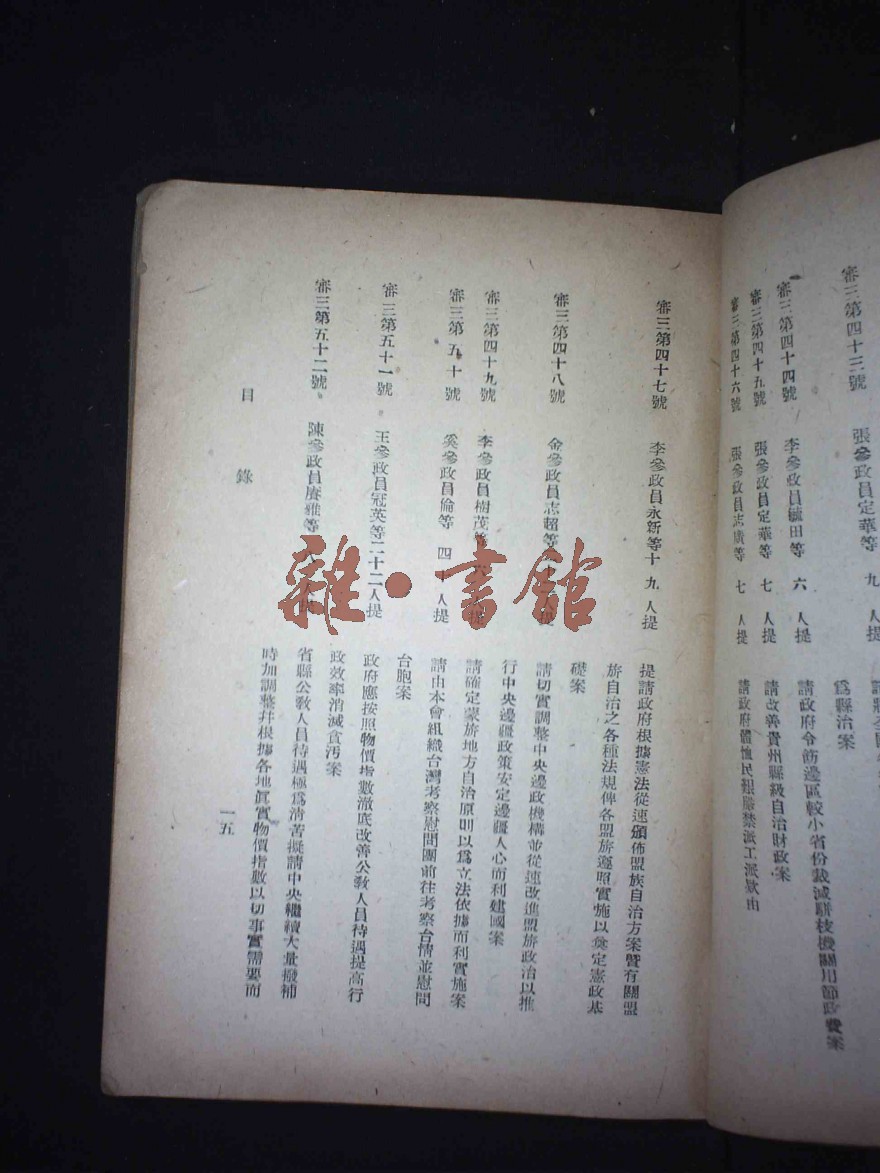 審三第四十三號 張參政員定華等 九 人提
爲縣治案
審三第四十四號 李參政員毓田等 六 人提 請政府令飭邊區較小省份裁減駢枝機關用節政費案
審三第四十五號 張參政員定華等 七 人提 請改善貴州縣級自治財政案
審三第四十六號 張參政員志廣等 七 人提 請政府體恤民艱嚴禁派工派款由
審三第四十七號 李參政員永新等十 九 人提 提請政府根據憲法從速頒佈盟族自治方案暨有關盟
旂自治之各種法規俾各盟旂遵照實施以奠定憲政基
礎案
審三第四十八號 金參政員志超等 人提 請切實調整中央邊政機構並從速改進盟旂政治以推
行中央邊疆政策安定邊疆人心而利建國案
審三第四十九號 李參政員樹茂等 人提 請確定蒙旂地方自治原則以爲立法依據而利實施案
審三第五十號 奚參政員倫等 四十人提 請由本會組織台灣考察慰問團前往考察台情並慰問
台胞案
審三第五十一號 王參政員冠英等二十二人提 政府應按照物價指數澈底改善公教人員待遇提高行
政效率消滅貪汚案
審三第五十二號 陳參政員賡雅等 人提 省縣公教人員待遇極爲清苦擬請中央繼續大量撥補
時加調整幷根據各地眞實物價指數以切事實需要而
目 錄
一五
雜·書館